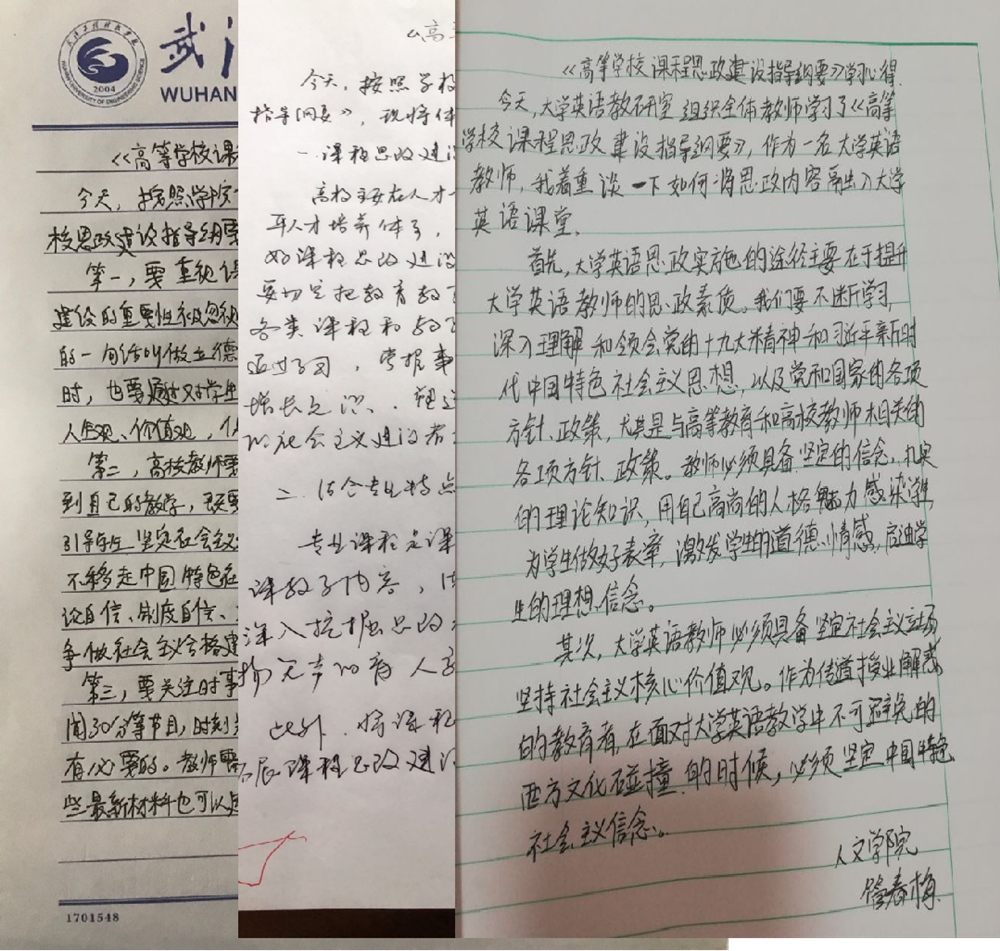 武
WUHAN
2004
《高等学校课
今天，按照学院
校思政建设指导纲要
第一，要重视课
建设的重要性不及忽视
的一句话叫做立德
时，也要通过对学生
人生观、价值观，
第二，高校教师要
到自己的教学，
引导学生坚定社会主义
不移走中国特色社
论自信、制度自信、
争做社会主义合格建
第三，要关注时事
闻30分等节目，时刻
有必要的。教师需
些最新材料也可以
1701548
《高等
今天，按照学校
指导纲要》，现将体
一、课程思政建设
高校主要在人才
平人才培养体系，
好课程思政建设
要切实把教育教学
各类课程和教学
增长知识、塑造
的社会主义建设者
二、结合专业特点
专业课程是课
课教学内容，
深入挖掘思政
物无声的育人
此外，将课程
展课程思政建设
《高等学校课程思政建设指导纲要》学习心得
今天，大学英语教研室组织全体教师学习了《高等
学校课程思政建设指导纲要》，作为一名大学英语
教师，我着重谈一下如何将思政内容融入大学
英语课堂。
首先，大学英语思政实施的途径主要在于提升
大学英语教师的思政素质。我们要不断学习，
深入理解和领会党的十九大精神和习近平新时
代中国特色社会主义思想，以及党和国家的各项
方针、政策，尤其是与高等教育和高校教师相关的
各项方针、政策。教师必须具备坚定的信念，扎实
的理论知识，用自己高尚的人格魅力感染学生，
为学生做好表率，激发学生的道德、情感，启迪学
生的理想、信念。
其次，大学英语教师必须具备坚定社会主义立场
坚持社会主义核心价值观。作为传道授业解惑
的教育者，在面对大学英语教学中不可避免的
西方文化碰撞的时候，必须坚定中国特色
社会主义信念。
人文学院
管春梅